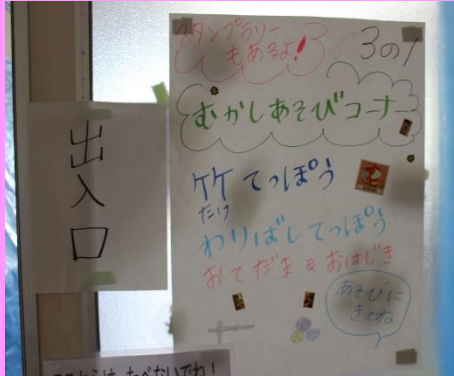 スタンプラリー
もあるよ!
3の1
むかしあそびコーナー
竹てっぽう
たけ
わりばしてっぽう
おてだま&おはじき
あそびに
きてね
出入口